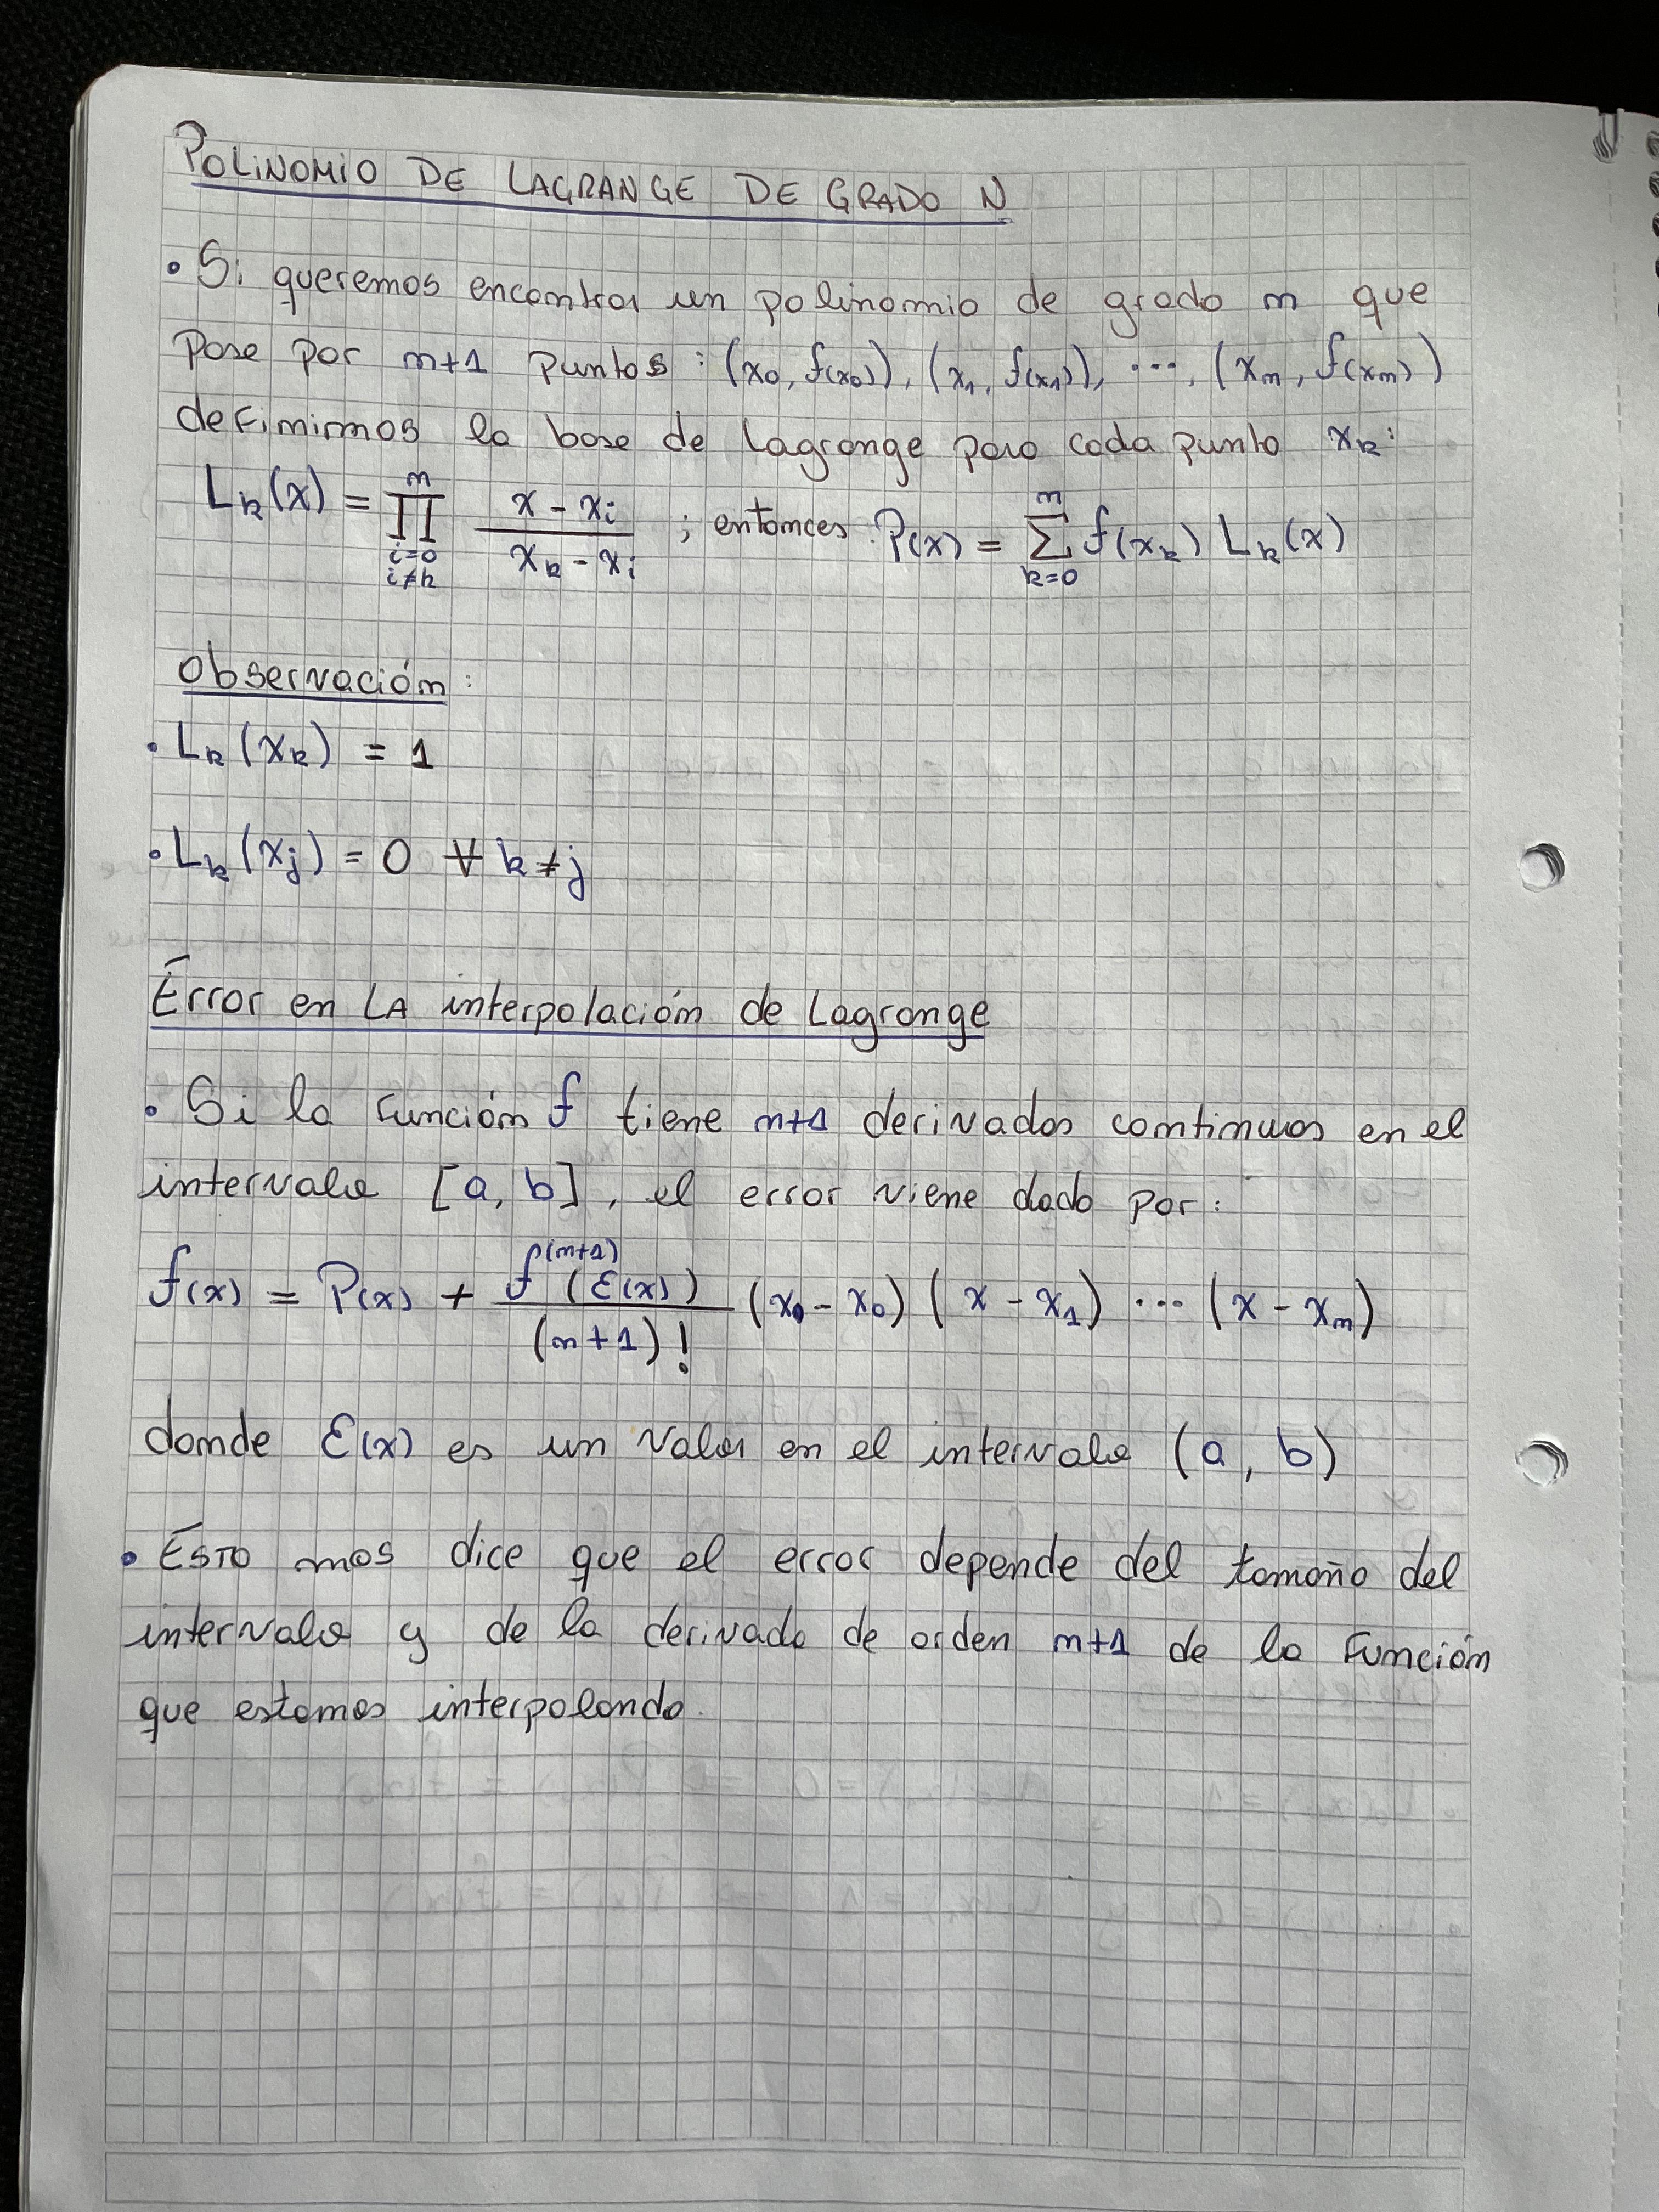 POLINOMIO DE LAGRANGE DE GRADO N
• Si queremos encontrar un polinomio de grado n que
pase por n+1 puntos: (x₀, f(x₀)), (x₁, f(x₁)), ..., (xₙ, f(xₙ))
definimos la base de Lagrange para cada punto xₖ:
Lₖ(x) = ∏_{i=0, i≠k}^{n} (x - xᵢ)/(xₖ - xᵢ) ; entonces: P(x) = ∑_{k=0}^{n} f(xₖ) Lₖ(x)
Observación:
• Lₖ(xₖ) = 1
• Lₖ(xⱼ) = 0 ∀ k ≠ j
Error en LA interpolación de Lagrange
• Si la función f tiene n+1 derivadas continuas en el
intervalo [a, b], el error viene dado por:
f(x) = P(x) + f⁽ⁿ⁺¹⁾(ξ(x))/(n+1)! (x₀ - x₀)(x - x₁) ··· (x - xₙ)
donde ξ(x) es un valor en el intervalo (a, b)
• Esto nos dice que el error depende del tamaño del
intervalo y de la derivada de orden n+1 de la función
que estamos interpolando.